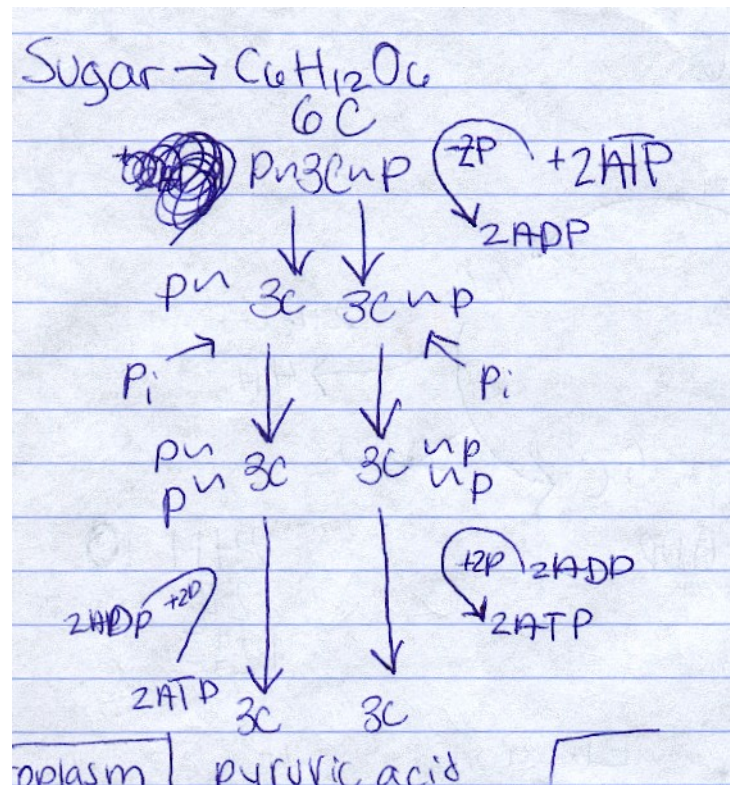 Sugar → C6H12O6
6C
P~3C~P -2P +2ATP
2ADP
P~ 3C 3C~P
Pi Pi
P~ 3C 3C ~P
P~ ~P
2ADP +2P +2P 2ADP
2ATP 2ATP
3C 3C
oplasm pyruvic acid